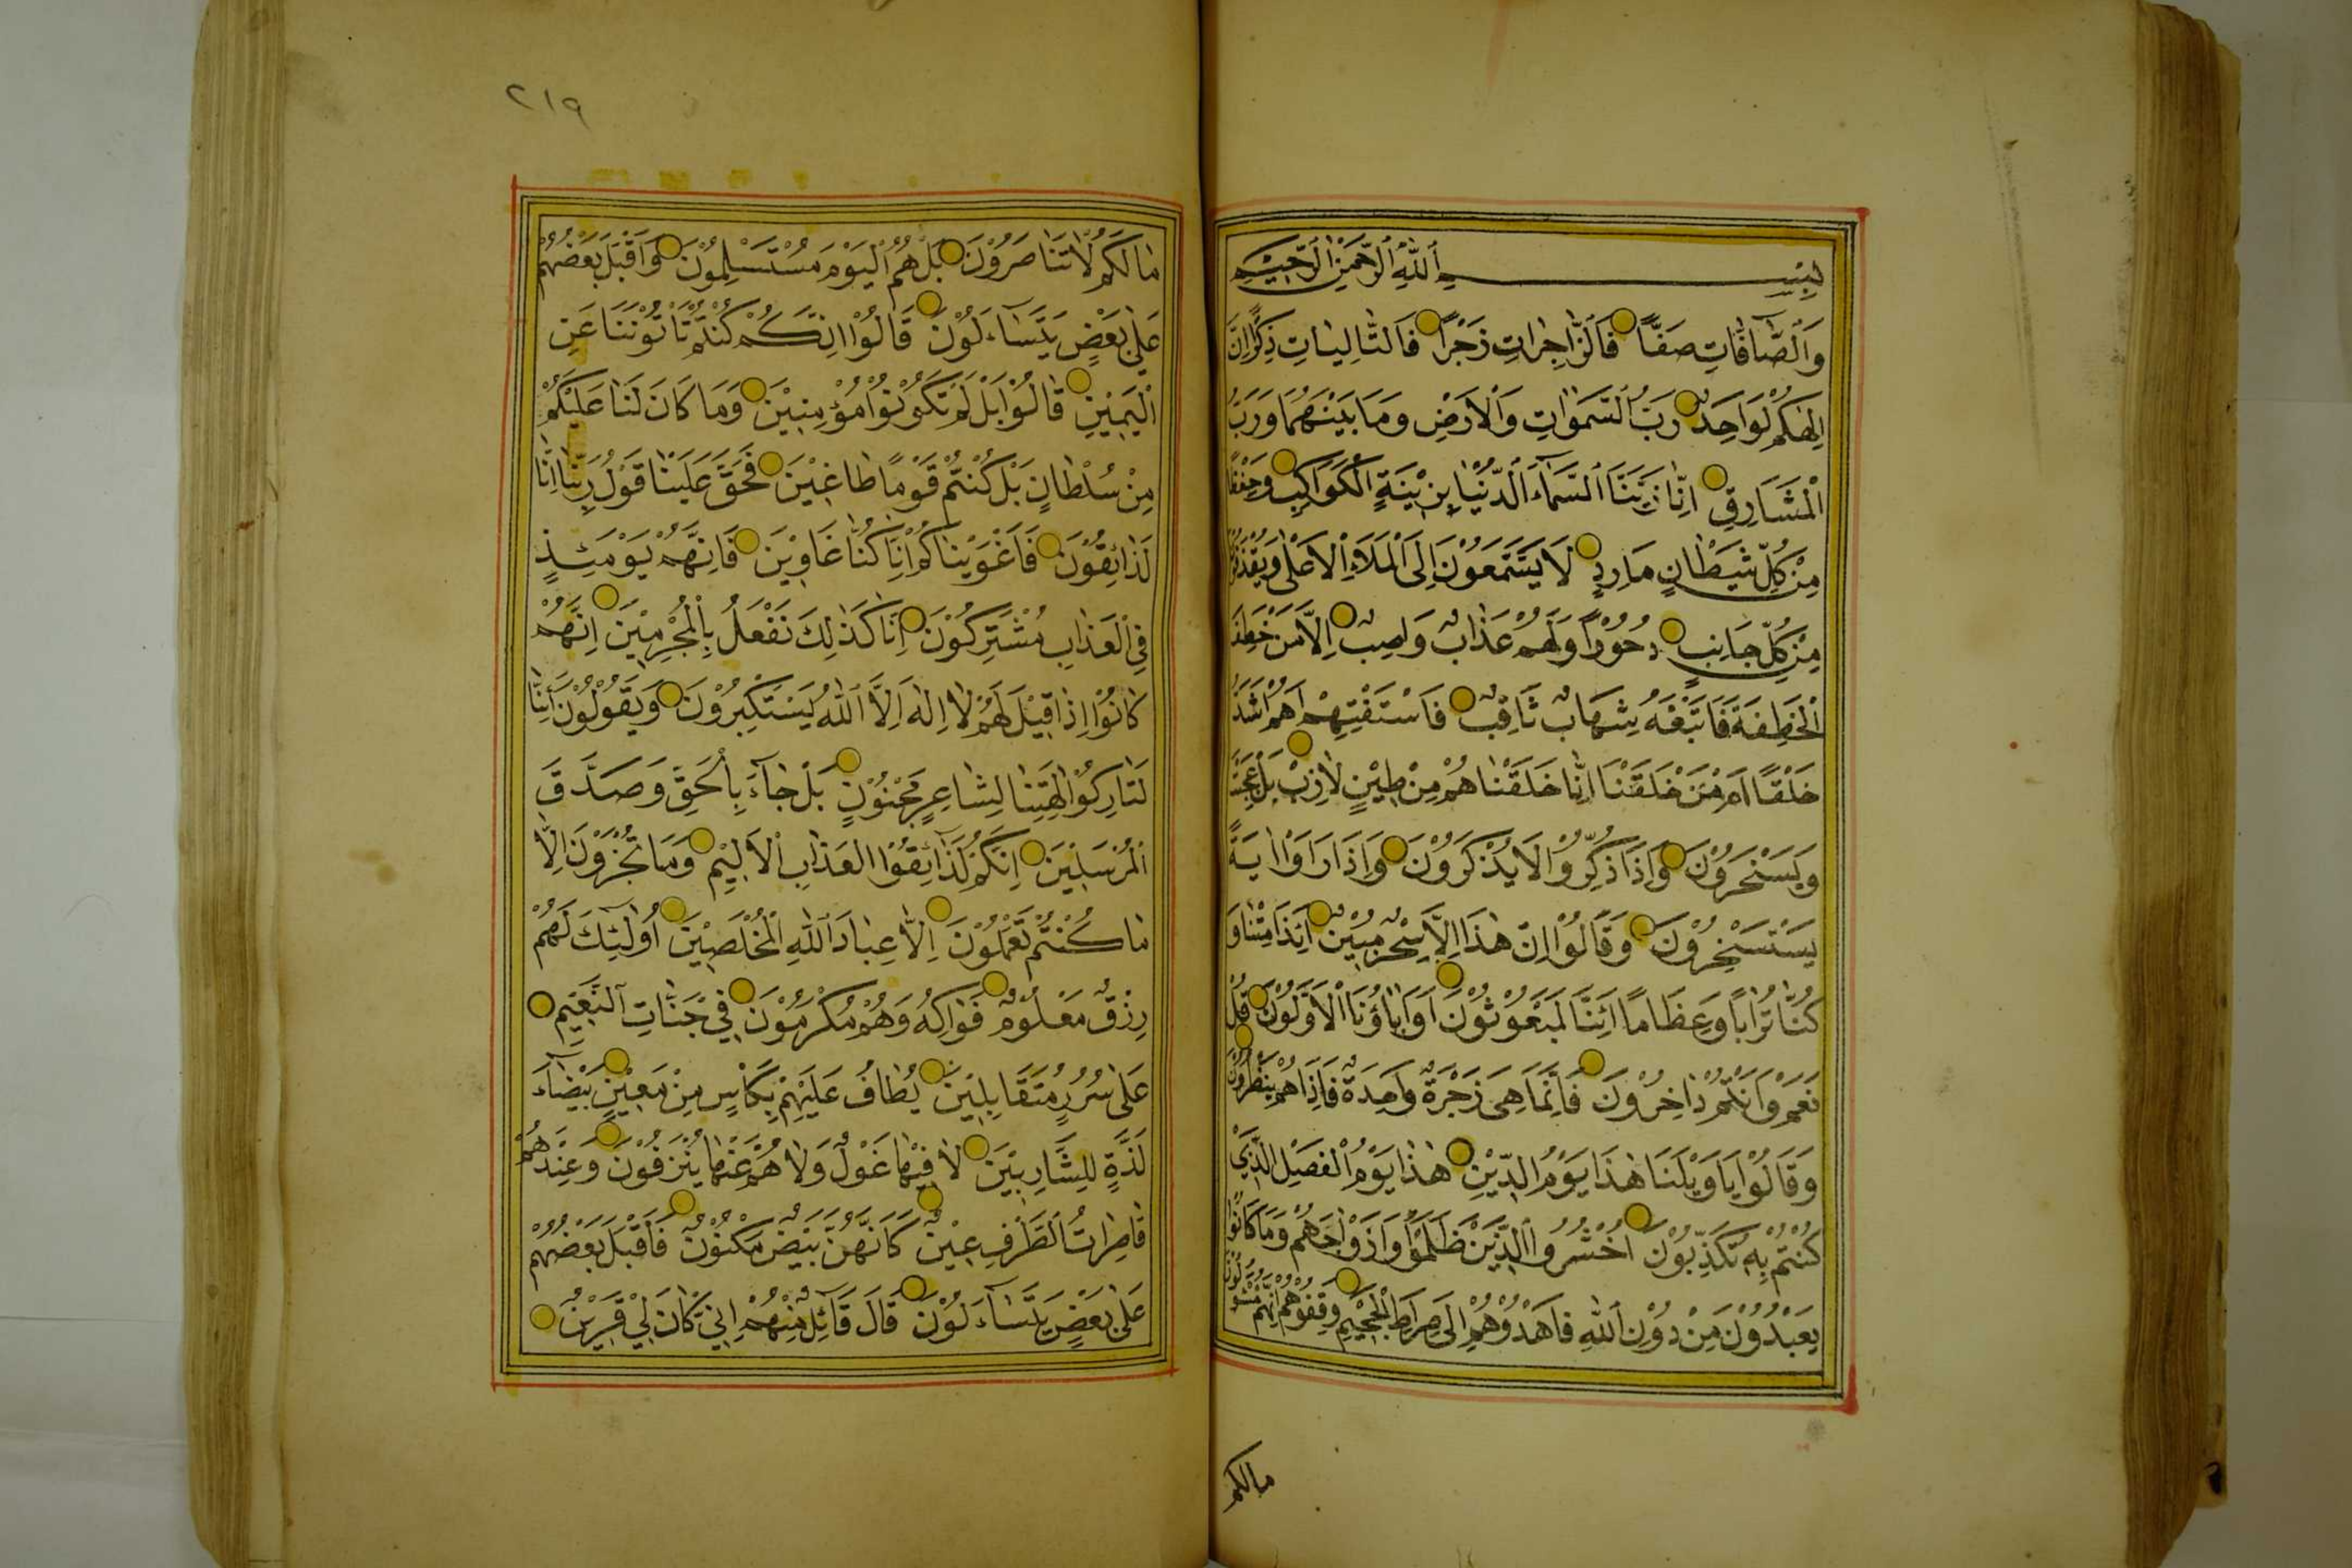 بِسْمِ اللهِ الرَّحْمٰنِ الرَّحِيْمِ
وَالصَّآفَّاتِ صَفًّا فَالزَّاجِرَاتِ زَجْرًا فَالتَّالِيَاتِ ذِكْرًا اِنَّ
اِلٰهَكُمْ لَوَاحِدٌ رَبُّ السَّمٰوَاتِ وَالْاَرْضِ وَمَا بَيْنَهُمَا وَرَبُّ
الْمَشَارِقِ اِنَّا زَيَّنَّا السَّمَآءَ الدُّنْيَا بِزِيْنَةٍ الْكَوَاكِبِ وَحِفْظًا
مِنْ كُلِّ شَيْطَانٍ مَارِدٍ لَا يَسَّمَّعُوْنَ اِلَى الْمَلَاءِ الْاَعْلٰى وَيُقْذَفُوْنَ
مِنْ كُلِّ جَانِبٍ دُحُوْرًا وَلَهُمْ عَذَابٌ وَاصِبٌ اِلَّا مَنْ خَطِفَ
الْخَطْفَةَ فَاَتْبَعَهُ شِهَابٌ ثَاقِبٌ فَاسْتَفْتِهِمْ اَهُمْ اَشَدُّ
خَلْقًا اَمْ مَنْ خَلَقْنَا اِنَّا خَلَقْنَاهُمْ مِنْ طِيْنٍ لَازِبٍ بَلْ عَجِبْتَ
وَيَسْخَرُوْنَ وَاِذَا ذُكِّرُوْا لَا يَذْكُرُوْنَ وَاِذَا رَاَوْا اٰيَةً
يَسْتَسْخِرُوْنَ وَقَالُوْا اِنْ هٰذَا اِلَّا سِحْرٌ مُبِيْنٌ اَئِذَا مِتْنَا وَ
كُنَّا تُرَابًا وَعِظَامًا اَئِنَّا لَمَبْعُوْثُوْنَ اَوَاٰبَاؤُنَا الْاَوَّلُوْنَ قُلْ
نَعَمْ وَاَنْتُمْ دَاخِرُوْنَ فَاِنَّمَا هِيَ زَجْرَةٌ وَاحِدَةٌ فَاِذَا هُمْ يَنْظُرُوْنَ
وَقَالُوْا يَا وَيْلَنَا هٰذَا يَوْمُ الدِّيْنِ هٰذَا يَوْمُ الْفَصْلِ الَّذِيْ
كُنْتُمْ بِهِ تُكَذِّبُوْنَ اُحْشُرُوا الَّذِيْنَ ظَلَمُوْا وَاَزْوَاجَهُمْ وَمَا كَانُوْا
يَعْبُدُوْنَ مِنْ دُوْنِ اللهِ فَاهْدُوْهُمْ اِلٰى صِرَاطِ الْجَحِيْمِ وَقِفُوْهُمْ اِنَّهُمْ مَسْؤُلُوْنَ
مالكم
٢١٩
مَا لَكُمْ لَا تَنَاصَرُوْنَ بَلْ هُمُ الْيَوْمَ مُسْتَسْلِمُوْنَ وَاَقْبَلَ بَعْضُهُمْ
عَلٰى بَعْضٍ يَتَسَآءَلُوْنَ قَالُوْا اِنَّكُمْ كُنْتُمْ تَأْتُوْنَنَا عَنِ
الْيَمِيْنِ قَالُوْا بَلْ لَمْ تَكُوْنُوْا مُؤْمِنِيْنَ وَمَا كَانَ لَنَا عَلَيْكُمْ
مِنْ سُلْطَانٍ بَلْ كُنْتُمْ قَوْمًا طَاغِيْنَ فَحَقَّ عَلَيْنَا قَوْلُ رَبِّنَا اِنَّا
لَذَائِقُوْنَ فَاَغْوَيْنَاكُمْ اِنَّا كُنَّا غَاوِيْنَ فَاِنَّهُمْ يَوْمَئِذٍ
فِي الْعَذَابِ مُشْتَرِكُوْنَ اِنَّا كَذٰلِكَ نَفْعَلُ بِالْمُجْرِمِيْنَ اِنَّهُمْ
كَانُوْا اِذَا قِيْلَ لَهُمْ لَا اِلٰهَ اِلَّا اللهُ يَسْتَكْبِرُوْنَ وَيَقُوْلُوْنَ اَئِنَّا
لَتَارِكُوْا اٰلِهَتِنَا لِشَاعِرٍ مَجْنُوْنٍ بَلْ جَآءَ بِالْحَقِّ وَصَدَّقَ
الْمُرْسَلِيْنَ اِنَّكُمْ لَذَآئِقُوا الْعَذَابِ الْاَلِيْمِ وَمَا تُجْزَوْنَ اِلَّا
مَا كُنْتُمْ تَعْمَلُوْنَ اِلَّا عِبَادَ اللهِ الْمُخْلَصِيْنَ اُولٰئِكَ لَهُمْ
رِزْقٌ مَعْلُوْمٌ فَوَاكِهُ وَهُمْ مُكْرَمُوْنَ فِيْ جَنَّاتِ النَّعِيْمِ
عَلٰى سُرُرٍ مُتَقَابِلِيْنَ يُطَافُ عَلَيْهِمْ بِكَأْسٍ مِنْ مَعِيْنٍ بَيْضَآءَ
لَذَّةٍ لِلشَّارِبِيْنَ لَا فِيْهَا غَوْلٌ وَلَا هُمْ عَنْهَا يُنْزَفُوْنَ وَعِنْدَهُمْ
قَاصِرَاتُ الطَّرْفِ عِيْنٌ كَاَنَّهُنَّ بَيْضٌ مَكْنُوْنٌ فَاَقْبَلَ بَعْضُهُمْ
عَلٰى بَعْضٍ يَتَسَآءَلُوْنَ قَالَ قَآئِلٌ مِنْهُمْ اِنِّيْ كَانَ لِيْ قَرِيْنٌ